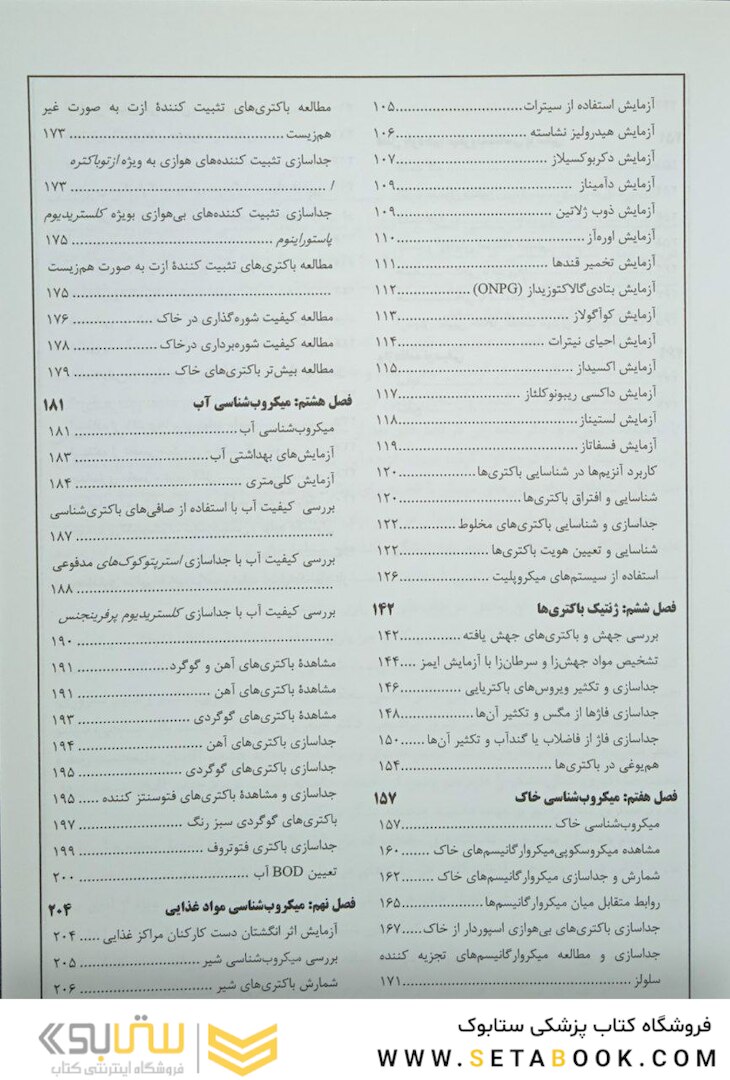 آزمایش استفاده از سیترات..........۱۰۵
آزمایش هیدرولیز نشاسته ..........۱۰۶
آزمایش دکربوکسیلاز ..........۱۰۷
آزمایش دآمیناز ..........۱۰۹
آزمایش ذوب ژلاتین ..........۱۰۹
آزمایش اوره‌آز..........۱۱۰
آزمایش تخمیر قندها ..........۱۱۱
آزمایش بتادی‌گالاکتوزیداز (ONPG) ..........۱۱۲
آزمایش کوآگولاز ..........۱۱۳
آزمایش احیای نیترات ..........۱۱۴
آزمایش اکسیداز ..........۱۱۵
آزمایش داکسی ریبونوکلئاز ..........۱۱۷
آزمایش لستیناز..........۱۱۸
آزمایش فسفاتاز..........۱۱۹
کاربرد آنزیم‌ها در شناسایی باکتری‌ها..........۱۲۰
شناسایی و افتراق باکتری‌ها..........۱۲۰
جداسازی و شناسایی باکتری‌های مخلوط ..........۱۲۲
شناسایی و تعیین هویت باکتری‌ها ..........۱۲۲
استفاده از سیستم‌های میکروپلیت ..........۱۲۶
فصل ششم: ژنتیک باکتری‌ها ۱۴۲
بررسی جهش و باکتری‌های جهش یافته ..........۱۴۲
تشخیص مواد جهش‌زا و سرطان‌زا با آزمایش ایمز ....۱۴۴
جداسازی و تکثیر ویروس‌های باکتریایی ..........۱۴۶
جداسازی فاژها از مگس و تکثیر آن‌ها..........۱۴۸
جداسازی فاژ از فاضلاب یا گندآب و تکثیر آن‌ها......۱۵۰
هم‌یوغی در باکتری‌ها ..........۱۵۴
فصل هفتم: میکروب‌شناسی خاک ۱۵۷
میکروب‌شناسی خاک ..........۱۵۷
مشاهده میکروسکوپی‌میکروارگانیسم‌های خاک .......۱۶۰
شمارش و جداسازی میکروارگانیسم‌های خاک .......۱۶۲
روابط متقابل میان میکروارگانیسم‌ها..........۱۶۵
جداسازی باکتری‌های بی‌هوازی اسپوردار از خاک.....۱۶۷
جداسازی و مطالعه میکروارگانیسم‌های تجزیه کننده
سلولز ..........۱۷۱
مطالعه باکتری‌های تثبیت کنندهٔ ازت به صورت غیر
هم‌زیست ..........۱۷۳
جداسازی تثبیت کننده‌های هوازی به ویژه ازتوباکتره
/ ..........۱۷۳
جداسازی تثبیت کننده‌های بی‌هوازی بویژه کلستریدیوم
پاستوراینوم ..........۱۷۵
مطالعه باکتری‌های تثبیت کنندهٔ ازت به صورت هم‌زیست
..........۱۷۵
مطالعه کیفیت شوره‌گذاری در خاک ..........۱۷۶
مطالعه کیفیت شوره‌برداری درخاک ..........۱۷۸
مطالعه بیش‌تر باکتری‌های خاک ..........۱۷۹
فصل هشتم: میکروب‌شناسی آب ۱۸۱
میکروب‌شناسی آب ..........۱۸۱
آزمایش‌های بهداشتی آب ..........۱۸۳
آزمایش کلی‌متری ..........۱۸۴
بررسی کیفیت آب با استفاده از صافی‌های باکتری‌شناسی
..........۱۸۷
بررسی کیفیت آب با جداسازی استرپتوکوک‌های مدفوعی
..........۱۸۸
بررسی کیفیت آب با جداسازی کلستریدیوم پرفرینجنس
..........۱۹۰
مشاهدهٔ باکتری‌های آهن و گوگرد ..........۱۹۱
مشاهدهٔ باکتری‌های آهن ..........۱۹۱
مشاهدهٔ باکتری‌های گوگردی ..........۱۹۳
جداسازی باکتری‌های آهن ..........۱۹۴
جداسازی باکتری‌های گوگردی ..........۱۹۵
جداسازی و مشاهدهٔ باکتری‌های فتوسنتز کننده .....۱۹۵
باکتری‌های گوگردی سبز رنگ ..........۱۹۷
جداسازی باکتری فتوتروف ..........۱۹۹
تعیین BOD آب ..........۲۰۰
فصل نهم: میکروب‌شناسی مواد غذایی ۲۰۴
آزمایش اثر انگشتان دست کارکنان مراکز غذایی .....۲۰۴
بررسی میکروب‌شناسی شیر ..........۲۰۵
شمارش باکتری‌های شیر ..........۲۰۶
فروشگاه کتاب پزشکی ستابوک
WWW.SETABOOK.COM
ستابوک
فروشگاه اینترنتی کتاب